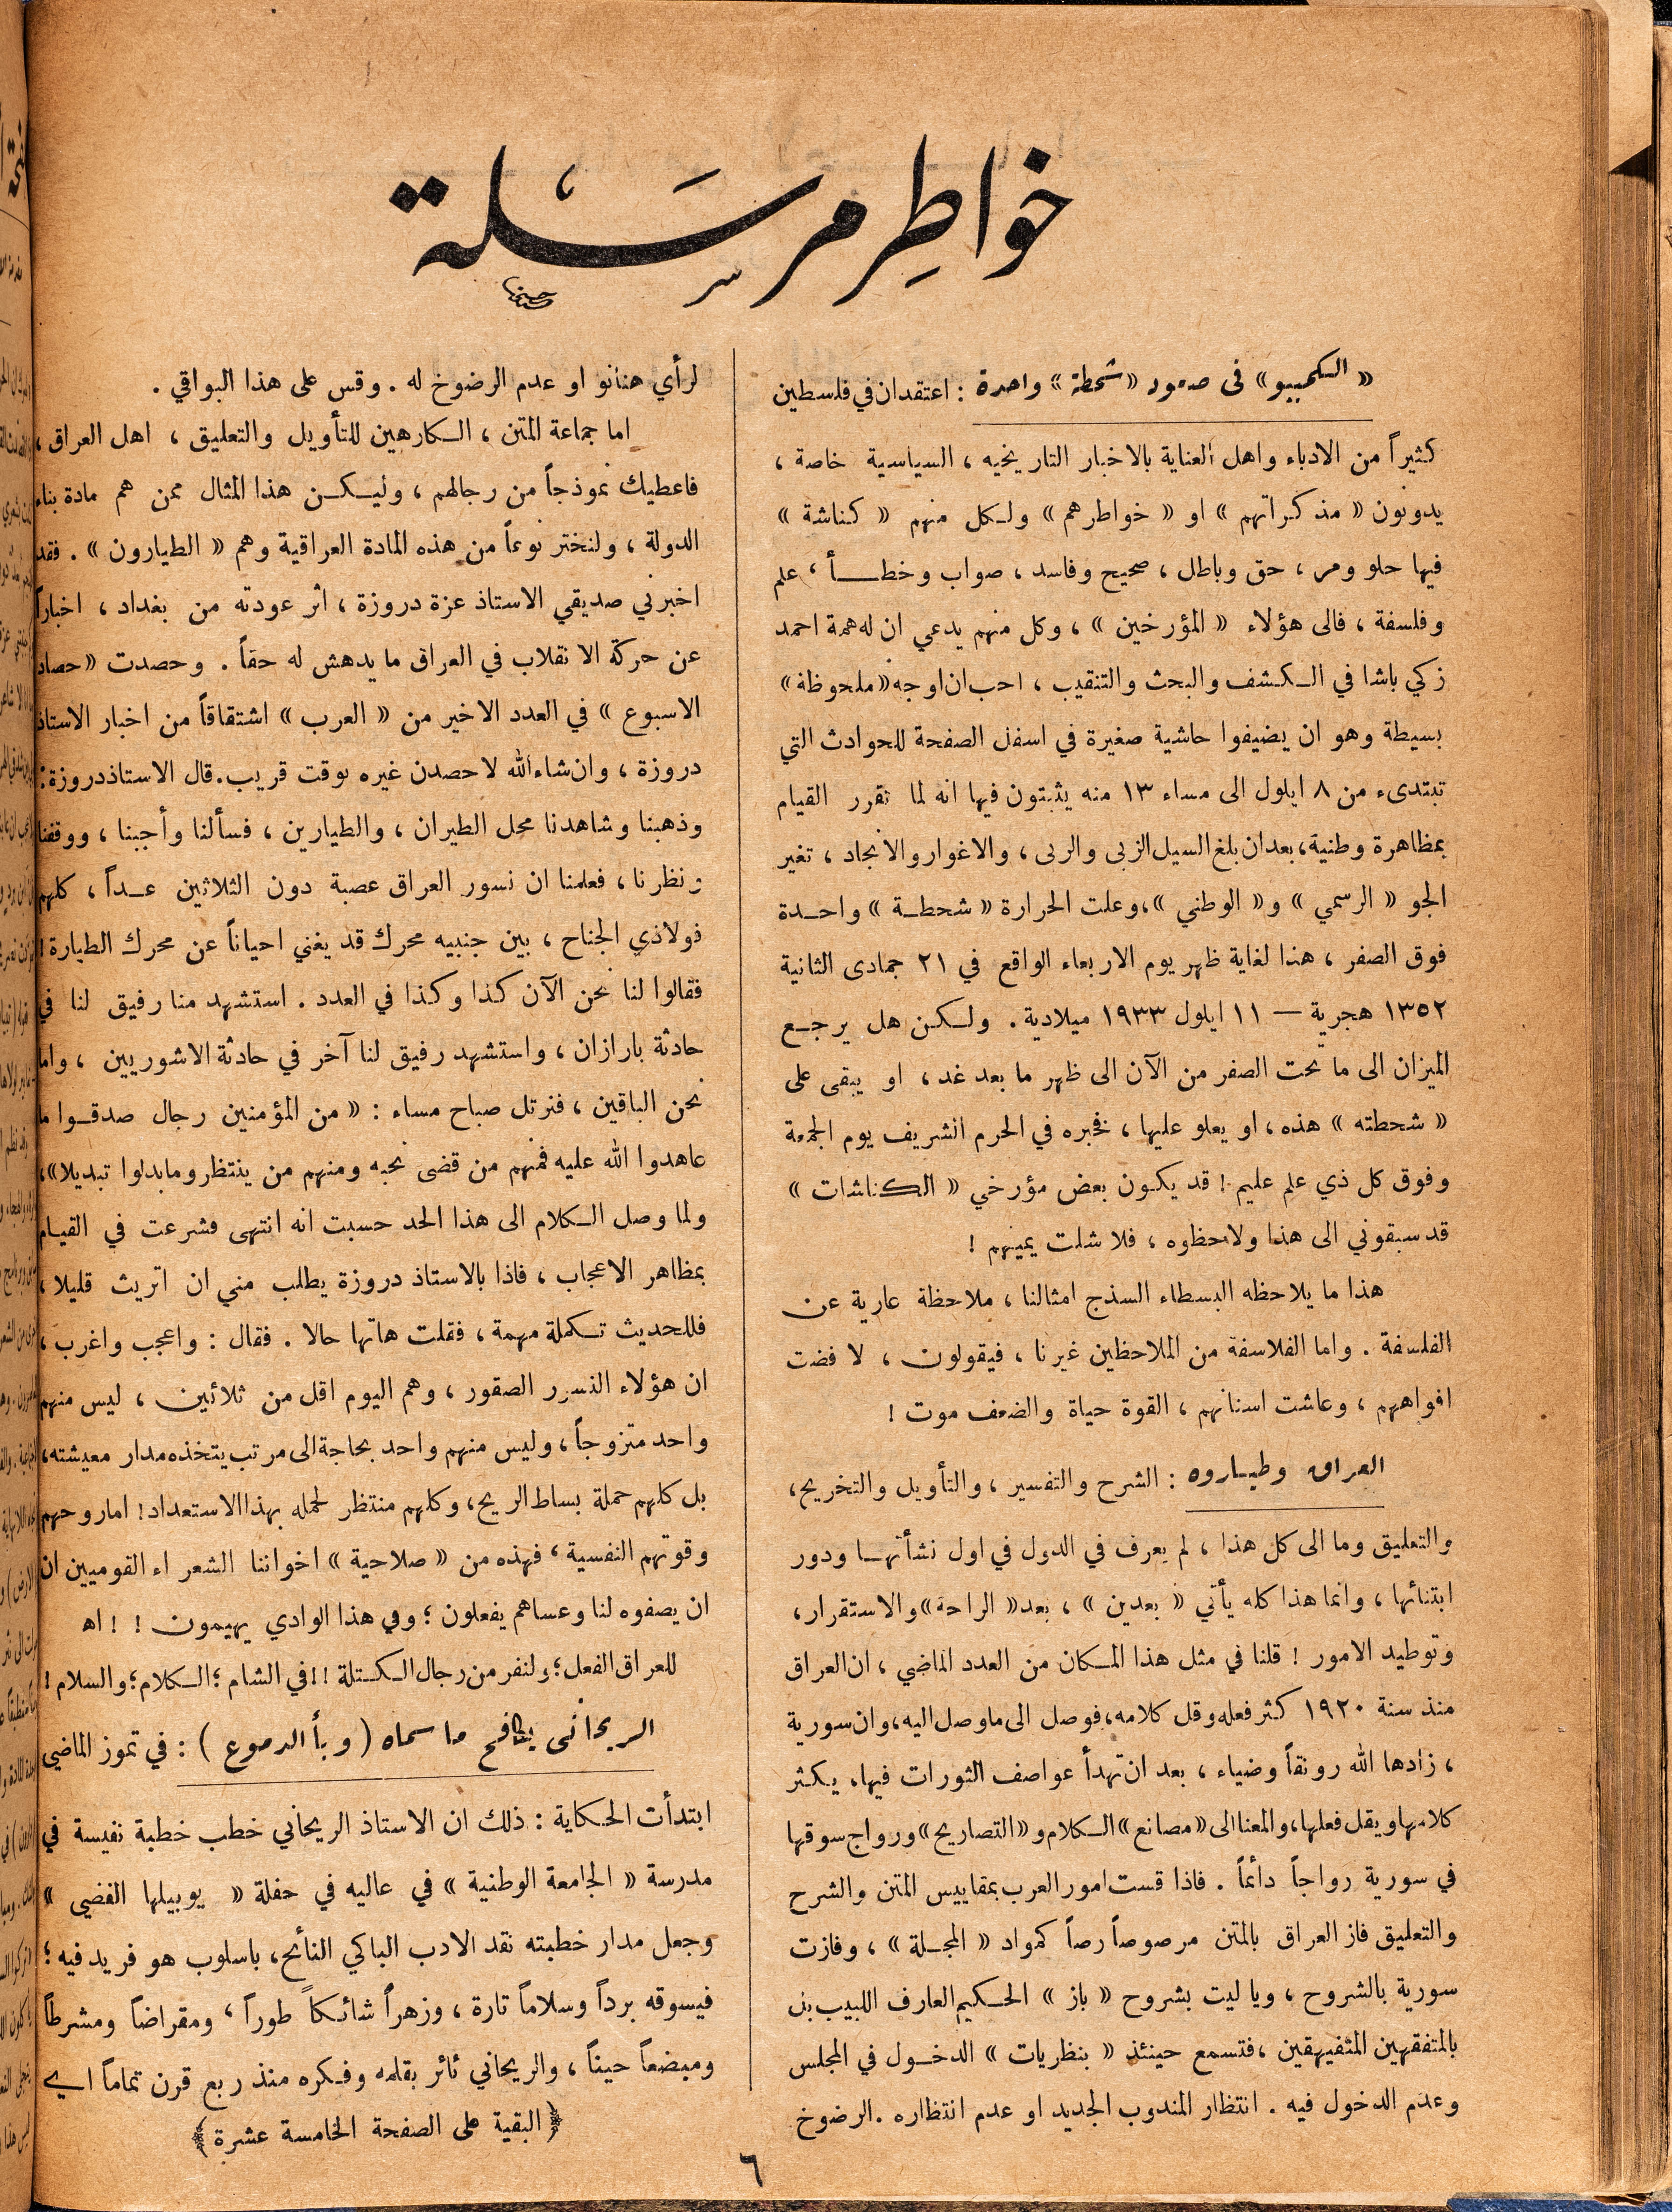 خواطر مرسلة
« الكمبيو » في صعود « شحطة » واحدة : اعتقد ان في فلسطين
كثيراً من الادباء واهل العناية بالاخبار التاريخيه ، السياسية خاصة ،
يدونون « مذكراتهم » او « خواطرهم » ولكل منهم « كناشة »
فيها حلو ومر ، حق وباطل ، صحيح وفاسد ، صواب وخطأ ، علم
وفلسفة ، فالى هؤلاء « المؤرخين » ، وكل منهم يدعي ان له همة احمد
زكي باشا في الكشف والبحث والتنقيب ، احب ان اوجه « ملحوظة »
بسيطة وهو ان يضيفوا حاشية صغيرة في اسفل الصفحة للحوادث التي
تبتدىء من ٨ ايلول الى مساء ١٣ منه يثبتون فيها انه لما تقرر القيام
بمظاهرة وطنية ، بعد ان بلغ السيل الزبى والربى ، والاغوار والانجاد ، تغير
الجو « الرسمي » و« الوطني » ، وعلت الحرارة « شحطة » واحدة
فوق الصفر ، هذا لغاية ظهر يوم الاربعاء الواقع في ٢١ جمادى الثانية
١٣٥٢ هجرية — ١١ ايلول ١٩٣٣ ميلادية . ولكن هل يرجع
الميزان الى ما تحت الصفر من الآن الى ظهر ما بعد غد ، او يبقى على
« شحطته » هذه ، او يعلو عليها ، فخبره في الحرم الشريف يوم الجمعة
وفوق كل ذي علم عليم ! قد يكون بعض مؤرخي « الكناشات »
قد سبقوني الى هذا ولاحظوه ، فلا شلت يمينهم !
هذا ما يلاحظه البسطاء السذج امثالنا ، ملاحظة عارية عن
الفلسفة . واما الفلاسفة من الملاحظين غيرنا ، فيقولون ، لا فضت
افواههم ، وعاشت اسنانهم ، القوة حياة والضعف موت !
العراق وطياروه : الشرح والتفسير ، والتأويل والتخريج ،
والتعليق وما الى كل هذا ، لم يعرف في الدول في اول نشأتها ودور
ابتنائها ، وانما هذا كله يأتي « بعدين » ، بعد « الراحة » والاستقرار ،
وتوطيد الامور ! قلنا في مثل هذا المكان من العدد الماضي ، ان العراق
منذ سنة ١٩٢٠ كثر فعله وقل كلامه ، فوصل الى ما وصل اليه ، وان سورية
، زادها الله رونقاً وضياء ، بعد ان تهدأ عواصف الثورات فيها ، يكثر
كلامها ويقل فعلها ، والمعنا الى « مصانع » الكلام و« التصاريح » ورواج سوقها
في سورية رواجاً دائماً . فاذا قست امور العرب بمقاييس المتن والشرح
والتعليق فاز العراق بالمتن مرصوصاً رصاً كمواد « المجلة » ، وفازت
سورية بالشروح ، ويا ليت بشروح « باز » الحكيم العارف اللبيب بل
بالمتفقهين المتفيهقين ، فتسمع حينئذ « بنظريات » الدخول في المجلس
وعدم الدخول فيه . انتظار المندوب الجديد او عدم انتظاره . الرضوخ
لرأي هنانو او عدم الرضوخ له . وقس على هذا البواقي .
اما جماعة المتن ، الكارهين للتأويل والتعليق ، اهل العراق ،
فاعطيك نموذجاً من رجالهم ، وليكن هذا المثال ممن هم مادة بناء
الدولة ، ولنختر نوعاً من هذه المادة العراقية وهم « الطيارون » . فقد
اخبرني صديقي الاستاذ عزة دروزة ، اثر عودته من بغداد ، اخباراً
عن حركة الانقلاب في العراق ما يدهش له حقاً . وحصدت « حصاد
الاسبوع » في العدد الاخير من « العرب » اشتقاقاً من اخبار الاستاذ
دروزة ، وان شاء الله لاحصدن غيره بوقت قريب . قال الاستاذ دروزة :
وذهبنا وشاهدنا محل الطيران ، والطيارين ، فسألنا وأجبنا ، ووقفنا
ونظرنا ، فعلمنا ان نسور العراق عصبة دون الثلاثين عداً ، كلهم
فولاذي الجناح ، بين جنبيه محرك قد يغني احياناً عن محرك الطيارة !
فقالوا لنا نحن الآن كذا وكذا في العدد . استشهد منا رفيق لنا في
حادثة بارازان ، واستشهد رفيق لنا آخر في حادثة الاشوريين ، واما
نحن الباقين ، فنرتل صباح مساء : « من المؤمنين رجال صدقوا ما
عاهدوا الله عليه فمنهم من قضى نحبه ومنهم من ينتظر وما بدلوا تبديلا » ،
ولما وصل الكلام الى هذا الحد حسبت انه انتهى فشرعت في القيام
بمظاهر الاعجاب ، فاذا بالاستاذ دروزة يطلب مني ان اتريث قليلا ،
فللحديث تكملة مهمة ، فقلت هاتها حالا . فقال : واعجب واغرب ،
ان هؤلاء النسور الصقور ، وهم اليوم اقل من ثلاثين ، ليس منهم
واحد متزوجاً ، وليس منهم واحد بحاجة الى مرتب يتخذه مدار معيشته ،
بل كلهم حملة بساط الريح ، وكلهم منتظر لحمله بهذا الاستعداد ! اما روحهم
وقوتهم النفسية ، فهذه من « صلاحية » اخواننا الشعراء القوميين ان
ان يصفوه لنا وعساهم يفعلون ؛ وفي هذا الوادي يهيمون ! ! اه
للعراق الفعل ؛ ولنفر من رجال الكتلة !! في الشام ؛ الكلام ؛ والسلام !
الريحاني يكافح ما سماه ( وبأ الدموع ) : في تموز الماضي
ابتدأت الحكاية : ذلك ان الاستاذ الريحاني خطب خطبة نفيسة في
مدرسة « الجامعة الوطنية » في عاليه في حفلة « يوبيلها الفضي »
وجعل مدار خطبته نقد الادب الباكي النائح ، باسلوب هو فريد فيه ؛
فيسوقه برداً وسلاماً تارة ، وزهراً شائكاً طوراً ، ومقراضاً ومشرطاً
ومبضعاً حيناً ، والريحاني ثائر بقلمه وفكره منذ ربع قرن تماماً اي
﴿ البقية على الصفحة الخامسة عشرة ﴾
٦